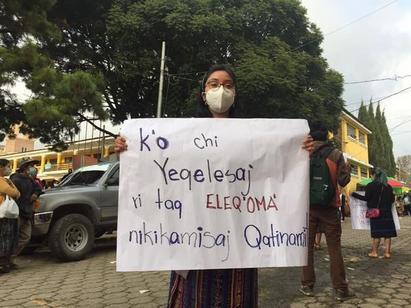 K'o chi
Yeqelesaj
ri taq ELEQ'OMA'
nikikamisaj Qatinamit